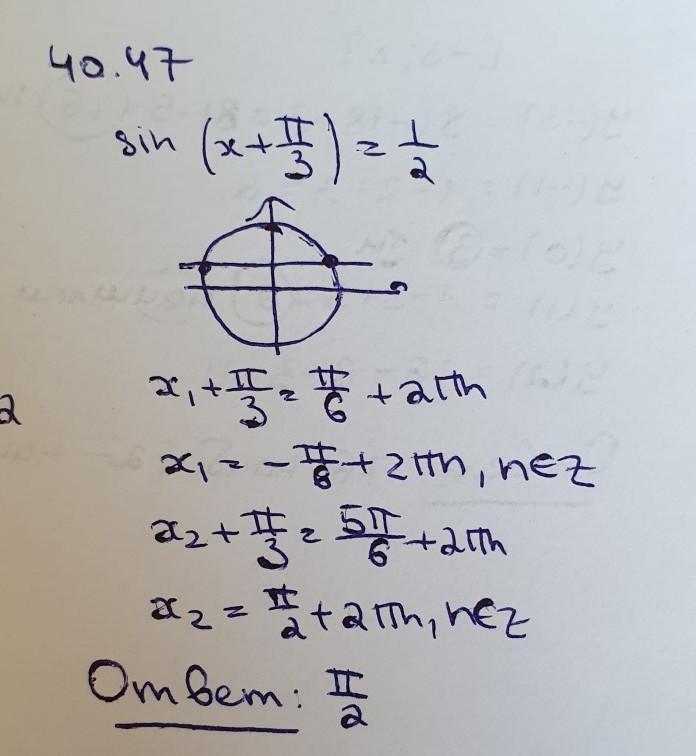 40.47
sin (x + π/3) = 1/2
x₁ + π/3 = π/6 + 2πn
x₁ = -π/6 + 2πn, n∈Z
2
x₂ + π/3 = 5π/6 + 2πn
x₂ = π/2 + 2πn, n∈Z
Ответ: π/2